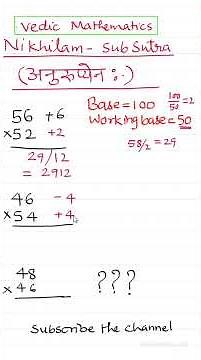 Vedic Mathematics
Nikhilam - Sub Sutra
(अनुरूप्येन :-)
Base = 100 100/50 = 2
Working base = 50
58/2 = 29
56 +6
×52 +2
29/12
= 2912
46 -4
×54 +4
48
×46
???
Subscribe the channel